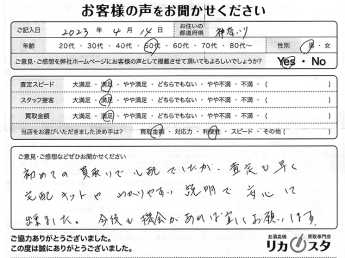 お客様の声をお聞かせください
ご記入日 2023 年 4 月 14 日 お住いの都道府県 神奈川
年齢 20代・30代・40代・50代・60代・70代・80代〜 性別 男・女
ご意見・ご感想を弊社ホームページにお客様の声として掲載させて頂いてもよろしいでしょうか? Yes・No
査定スピード 大満足・満足・やや満足・どちらでもない・やや不満・不満・( )
スタッフ接客 大満足・満足・やや満足・どちらでもない・やや不満・不満・( )
買取金額 大満足・満足・やや満足・どちらでもない・やや不満・不満・( )
当店をお選びいただきました決め手は? 買取金額・対応力・利便性・スピード・その他( )
ご意見・ご感想などぜひお聞かせください。
初めての買取りで心配でしたが、査定も早く
宅配キットや わかりやすい説明で安心して
出来ました。今後も機会があれば宜しくお願いします。
ご協力ありがとうございました。
この度は誠にありがとうございました。
お酒高価買取専門店
リカスタ